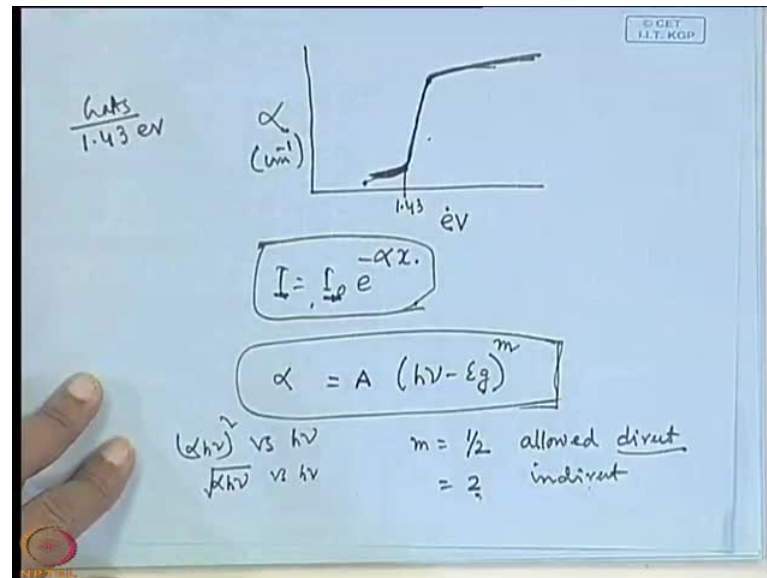 © CET
I.I.T. KGP
GaAs
1.43 eV
α
(cm⁻¹)
1.43
eV
I = I₀ e^(-αx).
α = A (hν - Eg)^m
(αhν)² vs hν
m = 1/2 allowed direct
√αhν vs hν
= 2 indirect
NPTEL